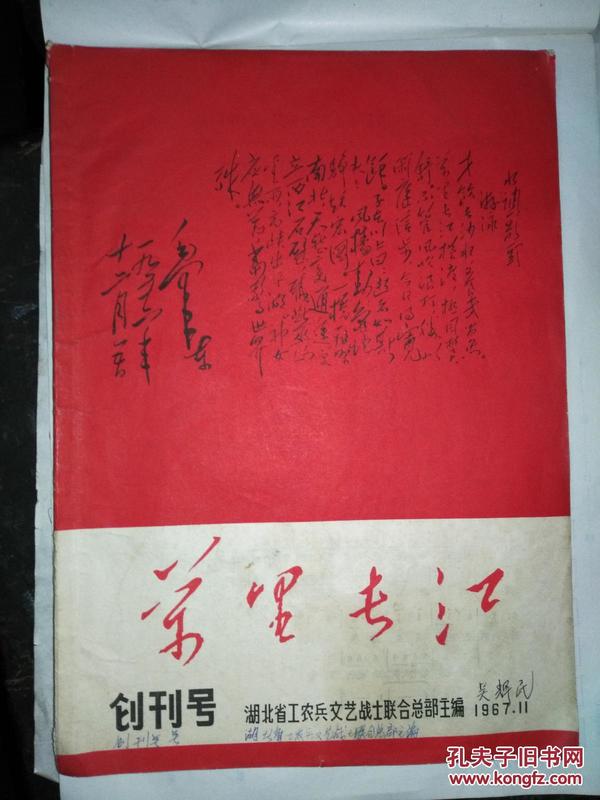 水调歌头
游泳
才饮长沙水又食武昌鱼
万里长江横渡极目楚天
舒不管风吹浪打胜似
闲庭信步今日得宽
馀子在川上曰逝者如斯
夫风樯动龟蛇
静起宏图一桥飞架
南北天堑变通途更立
西江石壁截断巫山
云雨高峡出平湖神女
应无恙当惊世界
殊。
毛泽东
一九五六年
十二月
万里长江
创刊号
湖北省工农兵文艺战士联合总部主编
吴辉民
1967.11
创刊号
湖北省工农兵文艺战士联合总部主编
孔夫子旧书网
www.kongfz.com